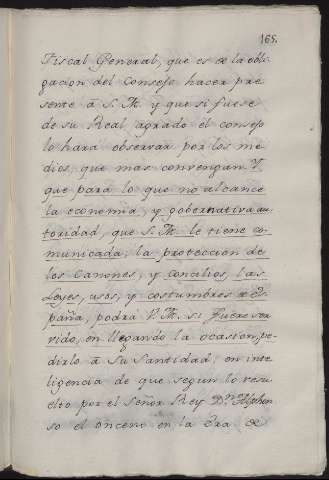 165.
Fiscal General, que es de la obli-
gacion del Consejo hacer pre
sente â S. M. y que si fuese
de su Real agrado el consejo
lo hará observar por los me
dios, que mas convengan. Y
que para lo que no alcance
la economia, y gobernativa au-
toridad, que S. M. le tiene co-
municada, la proteccion de
los Canones, y Concilios, las
Leyes, usos, y costumbres de Es-
paña, podrá V. M. si fuere ser
vido, en llegando la ocasion, pe-
dirlo â Su Santidad: en inte
ligencia de que segun lo resu
elto por el Señor Rey Dn. Alphon
so el onceno en la Era de